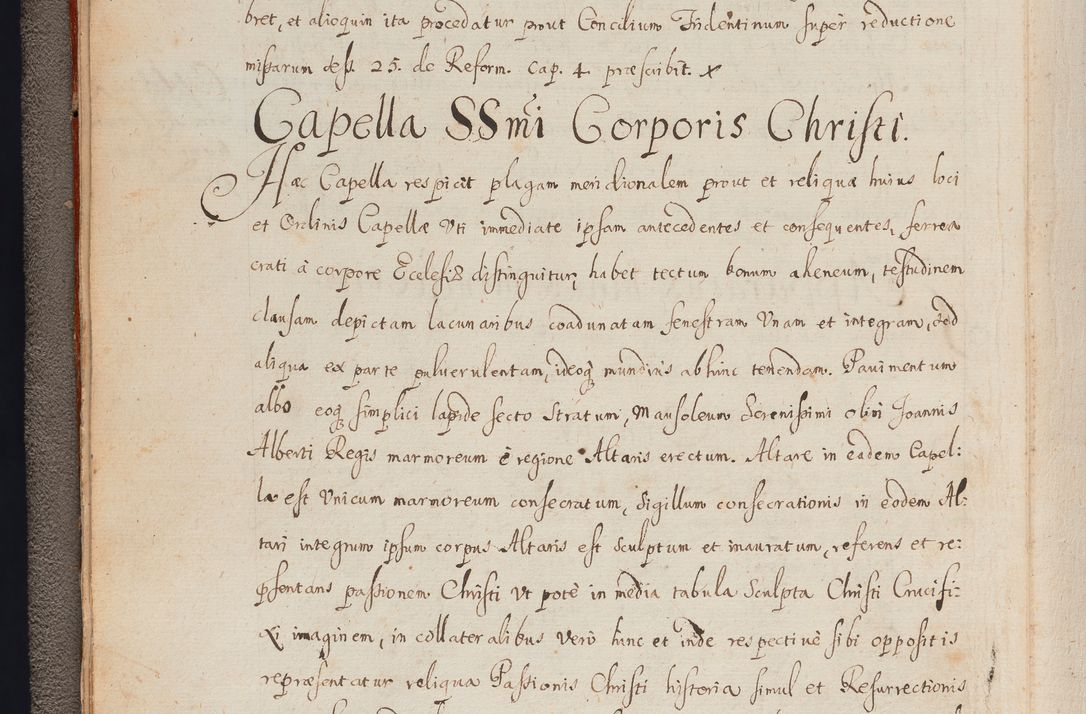 bret, et alioquin ita procedatur prout Concilium Tridentinum super reductione
missarum sess. 25. de Reform. cap. 4. præscribit. x
Capella SSmi Corporis Christi.
Hæc Capella respicit plagam meridionalem prout et reliquæ huius loci
et Ordinis Capellæ Vti immediate ipsam antecedentes et consequentes, ferrea
crati à corpore Ecclesiæ distinguitur, habet tectum bonum aheneum, testudinem
clausam depictam lacunaribus coadunatam fenestram Vnam et integram, sed
aliqua ex parte puluerulentam, ideoq mundius abhinc tenendam. Pauimentum
albo eoq simplici lapide secto stratum, Mausoleum Serenissimi olim Joannis
Alberti Regis marmoreum è regione Altaris erectum. Altare in eadem Capel:
la est Vnicum marmoreum consecratum, Sigillum consecrationis in eodem Al:
tari integrum ipsum corpus Altaris est sculptum et inauratum, referens et re:
psentans passionem Christi Vt potè in media tabula Sculpta Christi Crucifi:
xi imaginem, in collateralibus verò hinc et inde respectivè sibi oppositis
repræsentatur reliqua Passionis Christi historia simul et Resurrectionis